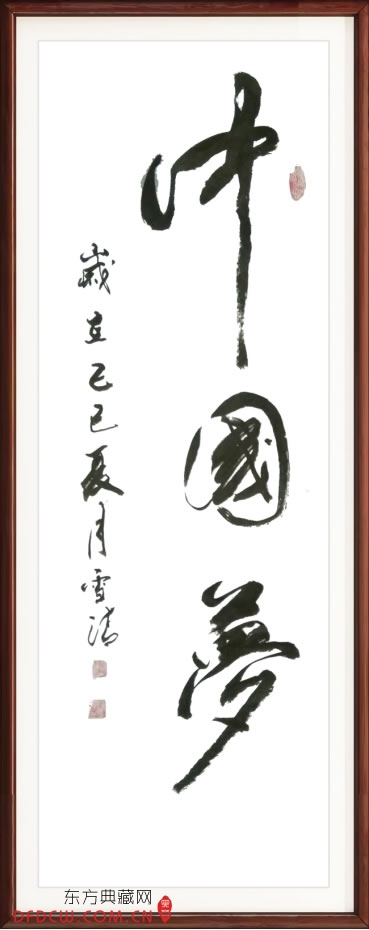 中國夢
歲在己巳夏月雪清
东方典藏网
DFDCW.COM.CN